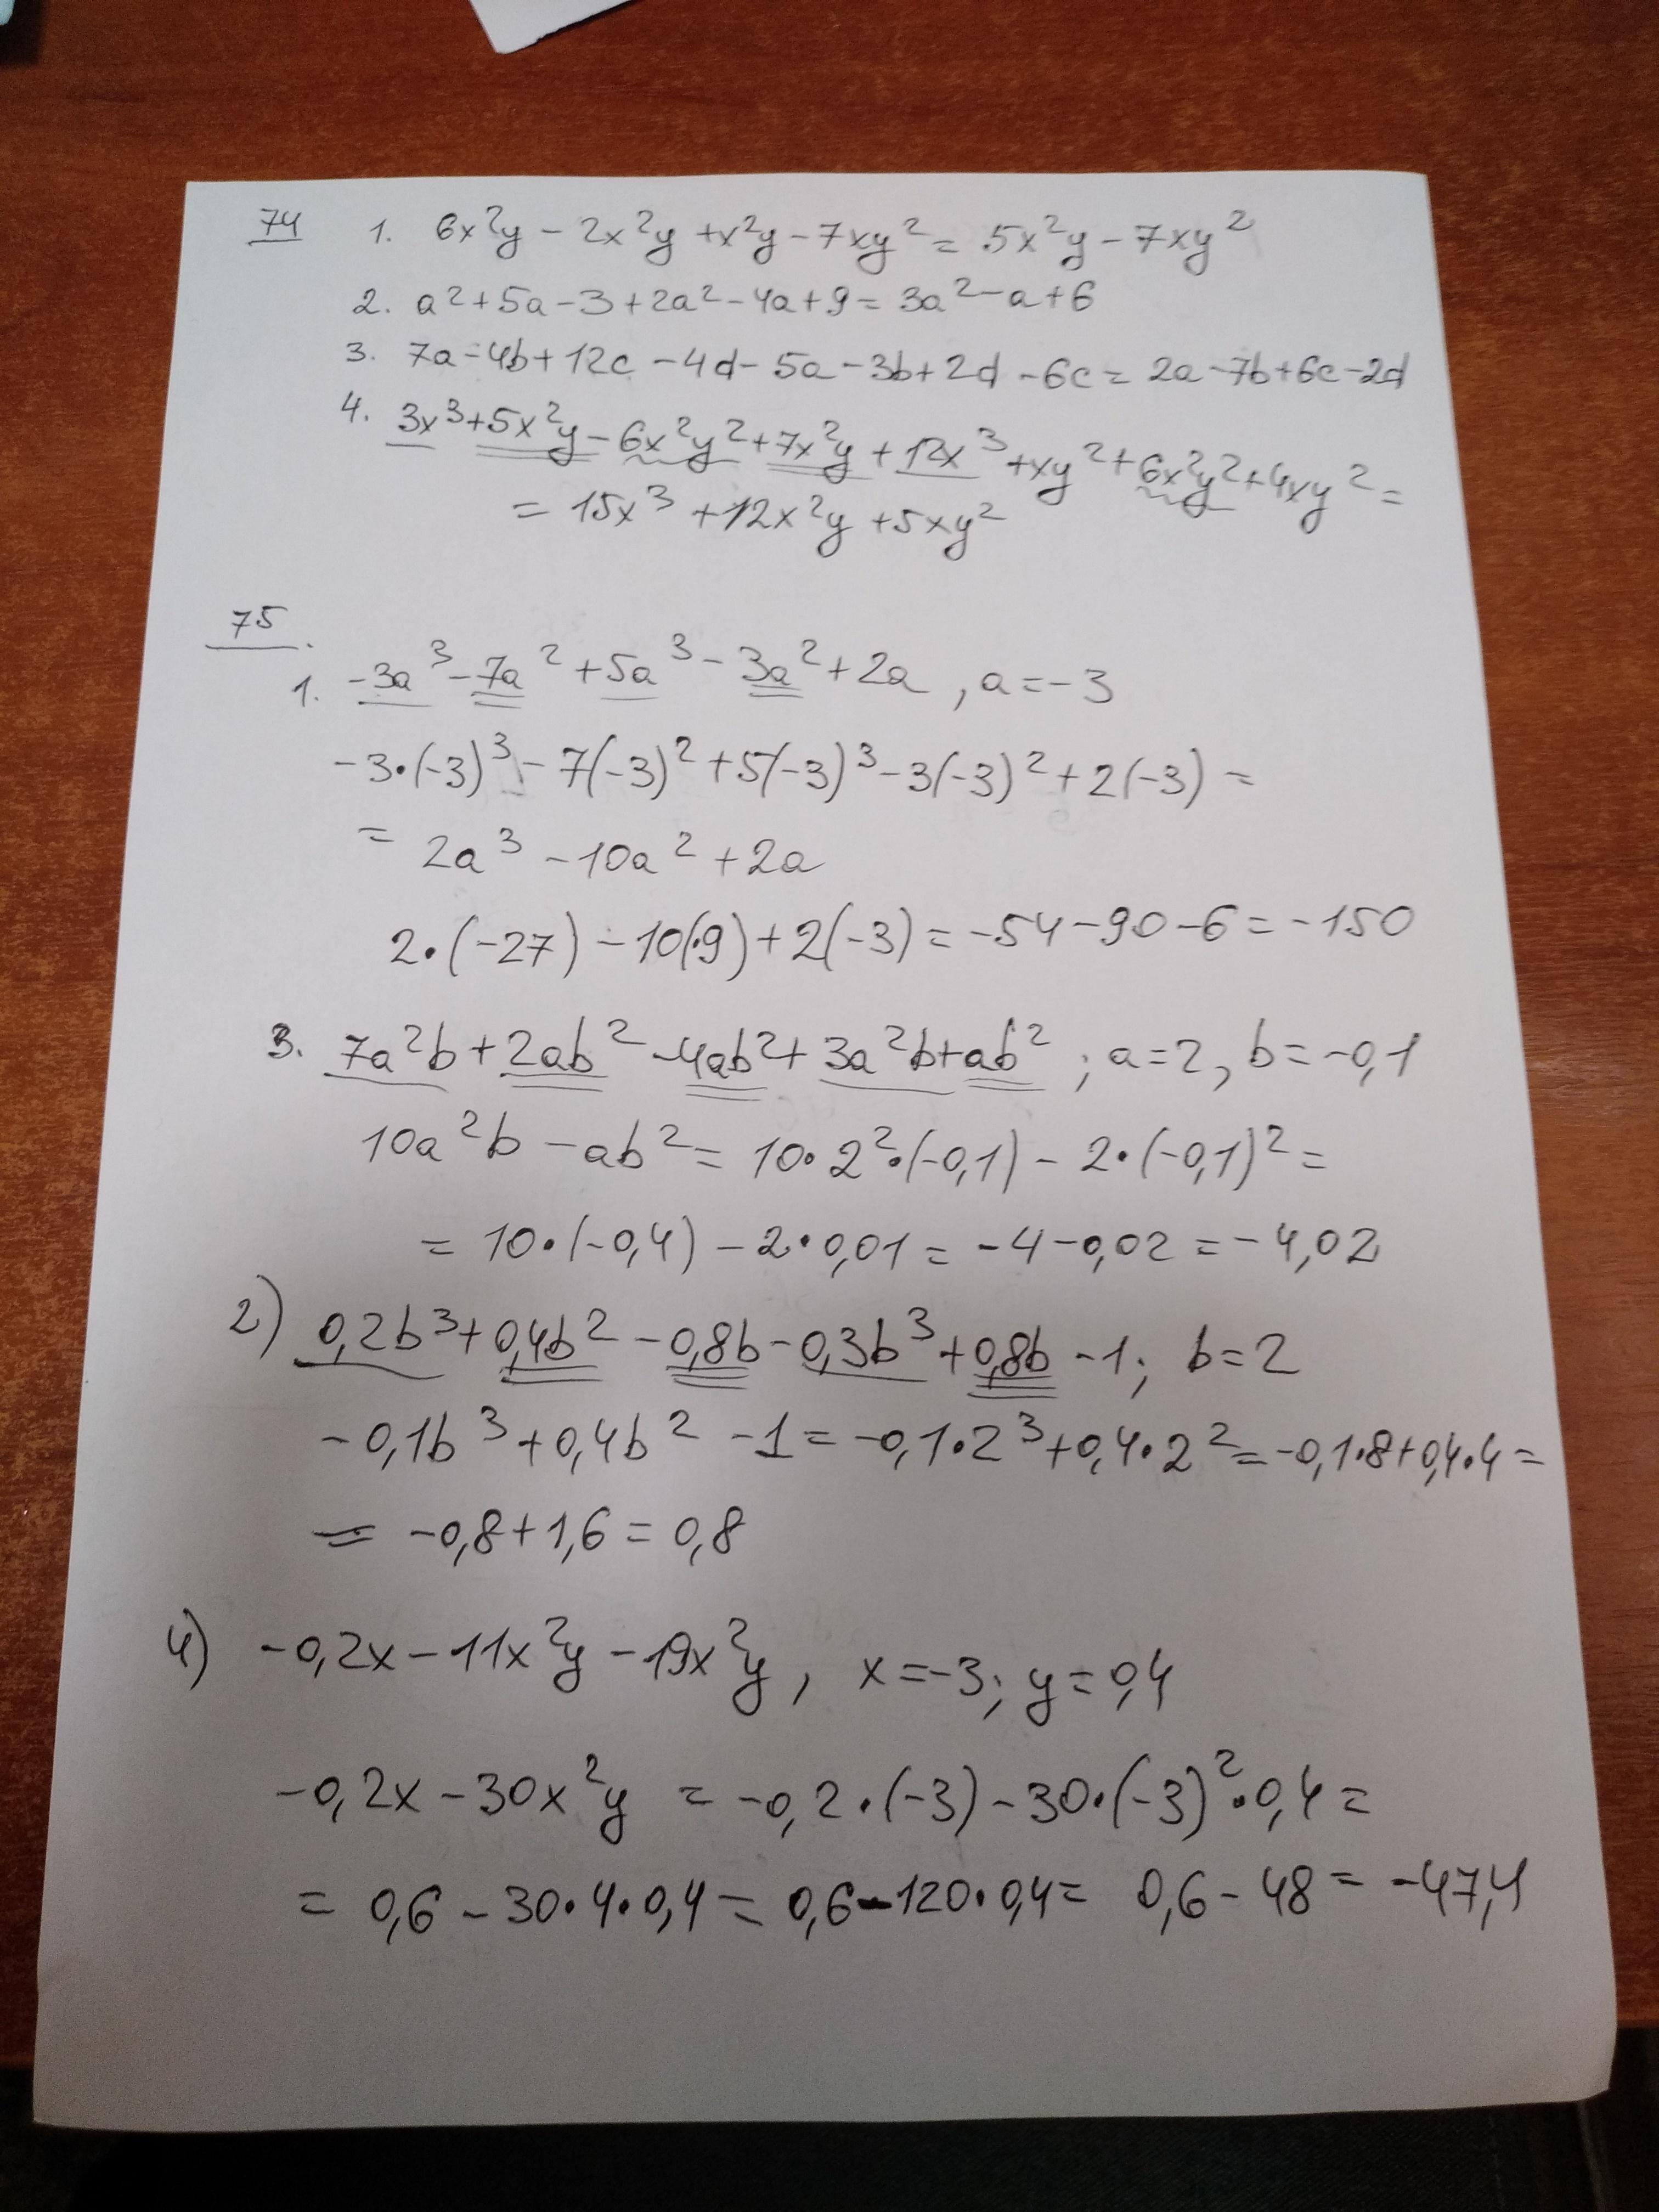 74 1. 6x²y - 2x²y + x²y - 7xy² = 5x²y - 7xy²
2. a² + 5a - 3 + 2a² - 4a + 9 = 3a² - a + 6
3. 7a - 4b + 12c - 4d - 5a - 3b + 2d - 6c = 2a - 7b + 6c - 2d
4. 3x³ + 5x²y - 6x²y² + 7x²y + 12x³ + xy² + 6x²y² + 4xy² =
= 15x³ + 12x²y + 5xy²
75.
1. -3a³ - 7a² + 5a³ - 3a² + 2a, a = -3
-3·(-3)³ - 7(-3)² + 5(-3)³ - 3(-3)² + 2(-3) =
= 2a³ - 10a² + 2a
2·(-27) - 10(·9) + 2(-3) = -54 - 90 - 6 = -150
3. 7a²b + 2ab² - 4ab² + 3a²b + ab²; a = 2, b = -0,1
10a²b - ab² = 10·2²·(-0,1) - 2·(-0,1)² =
= 10·(-0,4) - 2·0,01 = -4 - 0,02 = -4,02
2) 0,2b³ + 0,4b² - 0,8b - 0,3b³ + 0,8b - 1; b = 2
-0,1b³ + 0,4b² - 1 = -0,1·2³ + 0,4·2² = -0,1·8 + 0,4·4 =
= -0,8 + 1,6 = 0,8
4) -0,2x - 11x²y - 19x²y, x = -3; y = 0,4
-0,2x - 30x²y = -0,2·(-3) - 30·(-3)²·0,4 =
= 0,6 - 30·4·0,4 = 0,6 - 120·0,4 = 0,6 - 48 = -47,4